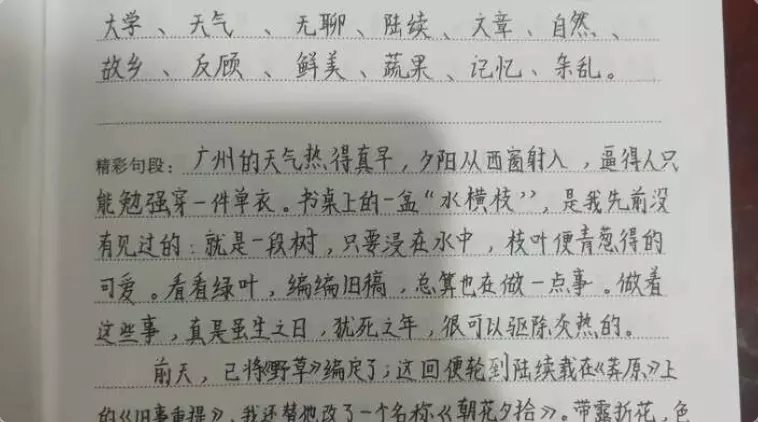 大学、天气、无聊、陆续、文章、自然、
故乡、反顾、鲜美、蔬果、记忆、杂乱。
精彩句段：广州的天气热得真早，夕阳从西窗射入，逼得人只
能勉强穿一件单衣。书桌上的一盆“水横枝”，是我先前没
有见过的：就是一段树，只要浸在水中，枝叶便青葱得的
可爱。看看绿叶，编编旧稿，总算也在做一点事。做着
这些事，真是虽生之日，犹死之年，很可以驱除炎热的。
前天，已将《野草》编定了；这回便轮到陆续载在《莽原》上
的《旧事重提》，我还替他改了一个名称《朝花夕拾》。带露折花，色